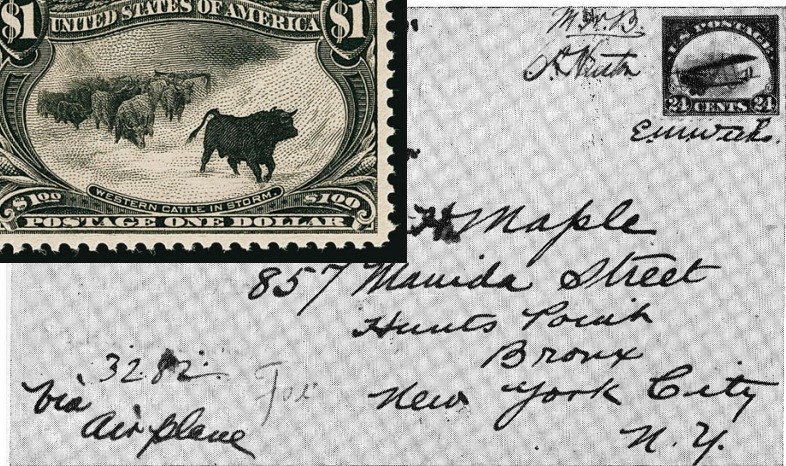 $1 UNITED STATES OF AMERICA $1
$1 00 WESTERN CATTLE IN STORM. $1 00
POSTAGE ONE DOLLAR
U.S. POSTAGE
24 CENTS 24
H. Maple
857 Manida Street
Hunts Point
Bronx
New York City
N.Y.
3282
Via
Air plane